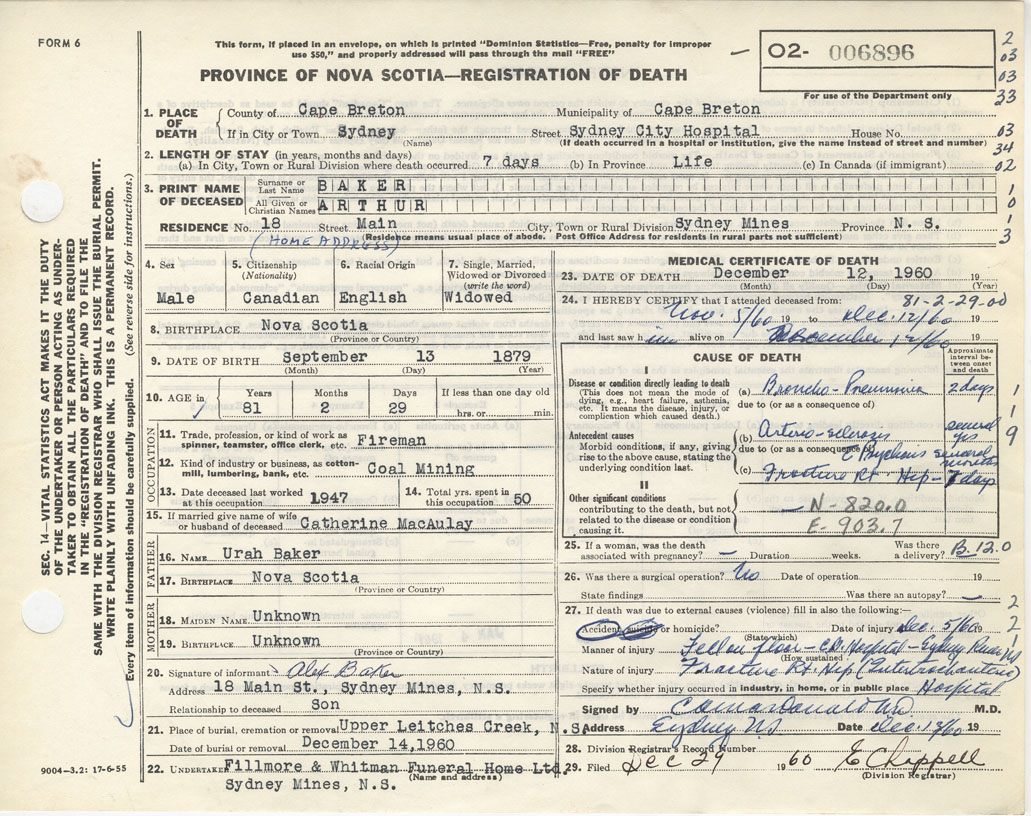 FORM 6
This form, if placed in an envelope, on which is printed "Dominion Statistics—Free, penalty for improper
use $50," and properly addressed will pass through the mail "FREE"
O2- 006896
For use of the Department only
PROVINCE OF NOVA SCOTIA—REGISTRATION OF DEATH
2
03
03
33
03
34
02
1
0
1
3
1. PLACE OF DEATH
County of Cape Breton Municipality of Cape Breton
If in City or Town Sydney Street Sydney City Hospital House No.
(Name) (If death occurred in a hospital or institution, give the name instead of street and number)
2. LENGTH OF STAY (in years, months and days)
(a) In City, Town or Rural Division where death occurred 7 days (b) In Province Life (c) In Canada (if immigrant)
3. PRINT NAME OF DECEASED
Surname or Last Name BAKER
All Given or Christian Names ARTHUR
RESIDENCE No. 18 Street Main City, Town or Rural Division Sydney Mines Province N. S.
(HOME ADDRESS) (Residence means usual place of abode. Post Office Address for residents in rural parts not sufficient)
4. Sex
Male
5. Citizenship
(Nationality)
Canadian
6. Racial Origin
English
7. Single, Married,
Widowed or Divorced
(write the word)
Widowed
8. BIRTHPLACE Nova Scotia
(Province or Country)
9. DATE OF BIRTH September 13 1879
(Month) (Day) (Year)
10. AGE in
Years Months Days If less than one day old
81 2 29 hrs. or min.
OCCUPATION
11. Trade, profession, or kind of work as
spinner, teamster, office clerk, etc. Fireman
12. Kind of industry or business, as cotton-
mill, lumbering, bank, etc. Coal Mining
13. Date deceased last worked
at this occupation 1947
14. Total yrs. spent in
this occupation 50
15. If married give name of wife
or husband of deceased Catherine MacAulay
FATHER
16. NAME Urah Baker
17. BIRTHPLACE Nova Scotia
(Province or Country)
MOTHER
18. MAIDEN NAME Unknown
19. BIRTHPLACE Unknown
(Province or Country)
20. Signature of informant Alex Baker
Address 18 Main St., Sydney Mines, N.S.
Relationship to deceased Son
21. Place of burial, cremation or removal Upper Leitches Creek, N.S.
Date of burial or removal December 14,1960
22. UNDERTAKER Fillmore & Whitman Funeral Home Ltd.
(Name and address)
Sydney Mines, N.S.
MEDICAL CERTIFICATE OF DEATH
23. DATE OF DEATH December 12, 1960 19
(Month) (Day) (Year)
24. I HEREBY CERTIFY that I attended deceased from: 81-2-29-00
Nov. 5/60 19 to Dec. 12/60 19
and last saw him alive on December 12/60 19
CAUSE OF DEATH
Approximate
interval be-
tween onset
and death
I
Disease or condition directly leading to death
(This does not mean the mode of
dying, e.g., heart failure, asthenia,
etc. It means the disease, injury, or
complication which caused death.)
(a) Broncho-Pneumonia 2 days
due to (or as a consequence of)
Antecedent causes
Morbid conditions, if any, giving
rise to the above cause, stating the
underlying condition last.
(b) Arterio-sclerosis several yrs
due to (or as a consequence of)
Psychosis several
(c) Fracture Rt Hip - 7 days
II
Other significant conditions
contributing to the death, but not
related to the disease or condition
causing it.
— N-820.0
E-903.7
1
1
9
25. If a woman, was the death
associated with pregnancy? — Duration weeks. Was there
a delivery? B.12.0
26. Was there a surgical operation? No Date of operation 19
State findings Was there an autopsy? —
27. If death was due to external causes (violence) fill in also the following:—
Accident, suicide or homicide? Date of injury Dec. 5/60 19
(State which)
Manner of injury Fell on floor - Hospital - Sydney River N.S
(How sustained)
Nature of injury Fracture Rt. Hip (Intertrochanteric)
Specify whether injury occurred in industry, in home, or in public place Hospital
2
2
1
Signed by M.D.
Address Sydney NS Date Dec. 12/60 19
28. Division Registrar's Record Number
29. Filed Dec 29 1960 E Chappell
(Division Registrar)
SEC. 14—VITAL STATISTICS ACT MAKES IT THE DUTY
OF THE UNDERTAKER OR PERSON ACTING AS UNDER-
TAKER TO OBTAIN ALL THE PARTICULARS REQUIRED
IN THE "REGISTRATION OF DEATH" AND TO FILE THE
SAME WITH THE DIVISION REGISTRAR WHO SHALL ISSUE THE BURIAL PERMIT.
WRITE PLAINLY WITH UNFADING INK. THIS IS A PERMANENT RECORD.
Every item of information should be carefully supplied. (See reverse side for instructions.)
9004-3.2: 17-6-55